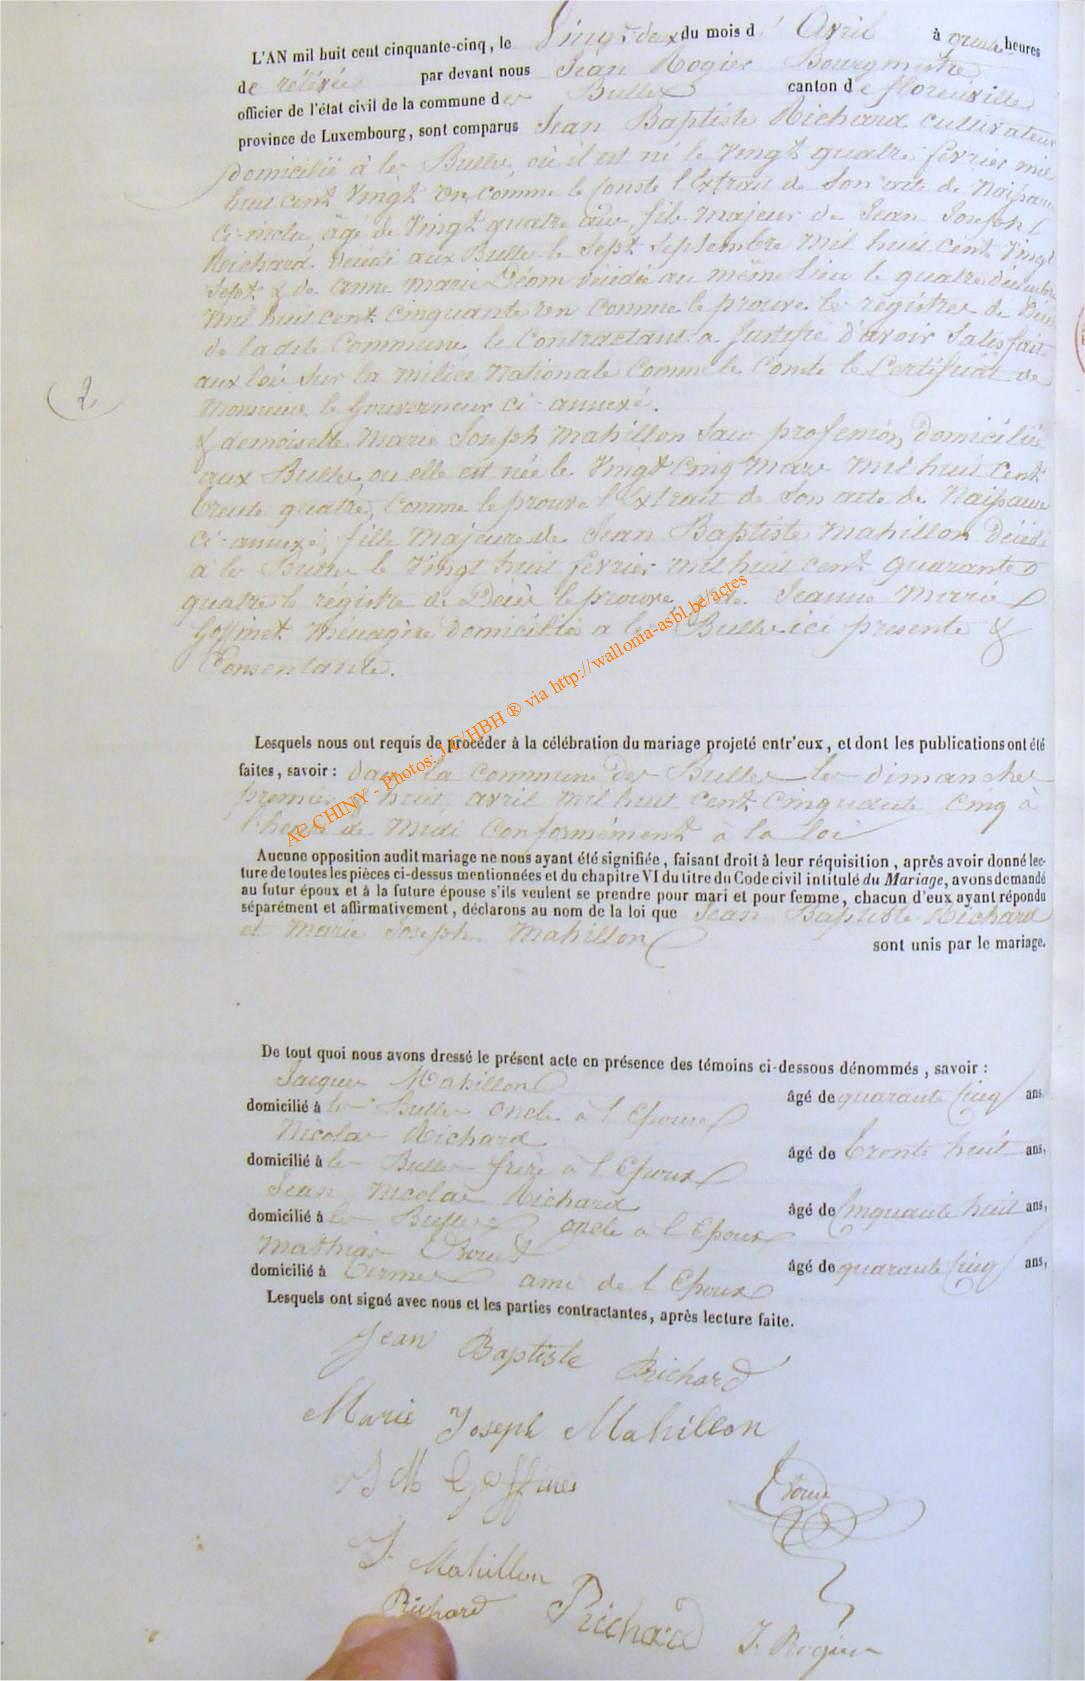 L'AN mil huit cent cinquante-cinq, le Vingt deux du mois d'Avril à onze heures
de relévée par devant nous Jean Rogier Bourgmestre
officier de l'état civil de la commune des Bulles canton de florenville
province de Luxembourg, sont comparus Jean Baptiste Richard cultivateur
domicilié à les Bulles, où il est né le Vingt quatre fevrier mil
huit cent Vingt un, comme le conste l'Extrait de Son acte de Naissance
ci-inclu, âgé de Vingt quatre ans, fils majeur de Jean Joseph
Richard, décédé aux Bulles le Sept Septembre mil huit cent Vingt
Sept & de anne marie Déom décédée au même lieu le quatre décembre
mil huit cent cinquante un comme le prouve le régistre de Décès
de ladite Commune le Contractant a Justifié d'avoir Satisfait
aux lois Sur la milice Nationale Comme le Conste le Certificat de
Monsieur le Gouverneur ci-annexé.
2
& demoiselle Marie Joseph Mahillon Sans profession, Domiciliée
aux Bulles, ou elle est née le Vingt Cinq Mars Mil huit Cent
trente quatre, comme le prouve l'Extrait de Son acte de Naissance
ci-annexé, fille Majeure de Jean Baptiste Mahillon Décédé
à les Bulles le Vingt huit fevrier mil huit cent quarante
quatre le régistre de Décès le prouve & de Jeanne Marie
Goffinet Ménagère Domiciliée a les Bulles ici presente &
Consentante.
AC CHINY - Photos: J.C/HBH ® via http://wallonia-asbl.be/actes
Lesquels nous ont requis de procéder à la célébration du mariage projeté entr'eux, et dont les publications ont été
faites, savoir : dans la commune des Bulles les dimanches
premier & huit avril mil huit cent cinquante cinq à
l'heure de Midi conformément à la loi
Aucune opposition audit mariage ne nous ayant été signifiée, faisant droit à leur réquisition, après avoir donné lec-
ture de toutes les pièces ci-dessus mentionnées et du chapitre VI du titre du Code civil intitulé du Mariage, avons demandé
au futur époux et à la future épouse s'ils veulent se prendre pour mari et pour femme, chacun d'eux ayant répondu
séparément et affirmativement, déclarons au nom de la loi que Jean Baptiste Richard
et Marie Joseph Mahillon
sont unis par le mariage.
De tout quoi nous avons dressé le présent acte en présence des témoins ci-dessous dénommés, savoir :
Jacques Mahillon âgé de quarante Cinq ans
domicilié à les Bulles oncle à l'Epouse
Nicolas Richard âgé de trente huit ans,
domicilié à les Bulles frère à l'Epoux
Jean Nicolas Richard âgé de Cinquante huit ans,
domicilié à les Bulles oncle à l'Epoux
Mathias âgé de quarante Cinq ans,
domicilié à Termes ami de l'Epoux
Lesquels ont signé avec nous et les parties contractantes, après lecture faite.
Jean Baptiste Richard
Marie Joseph Mahillon
J M Goffinet
J. Mahillon
Richard Richard J. Rogier